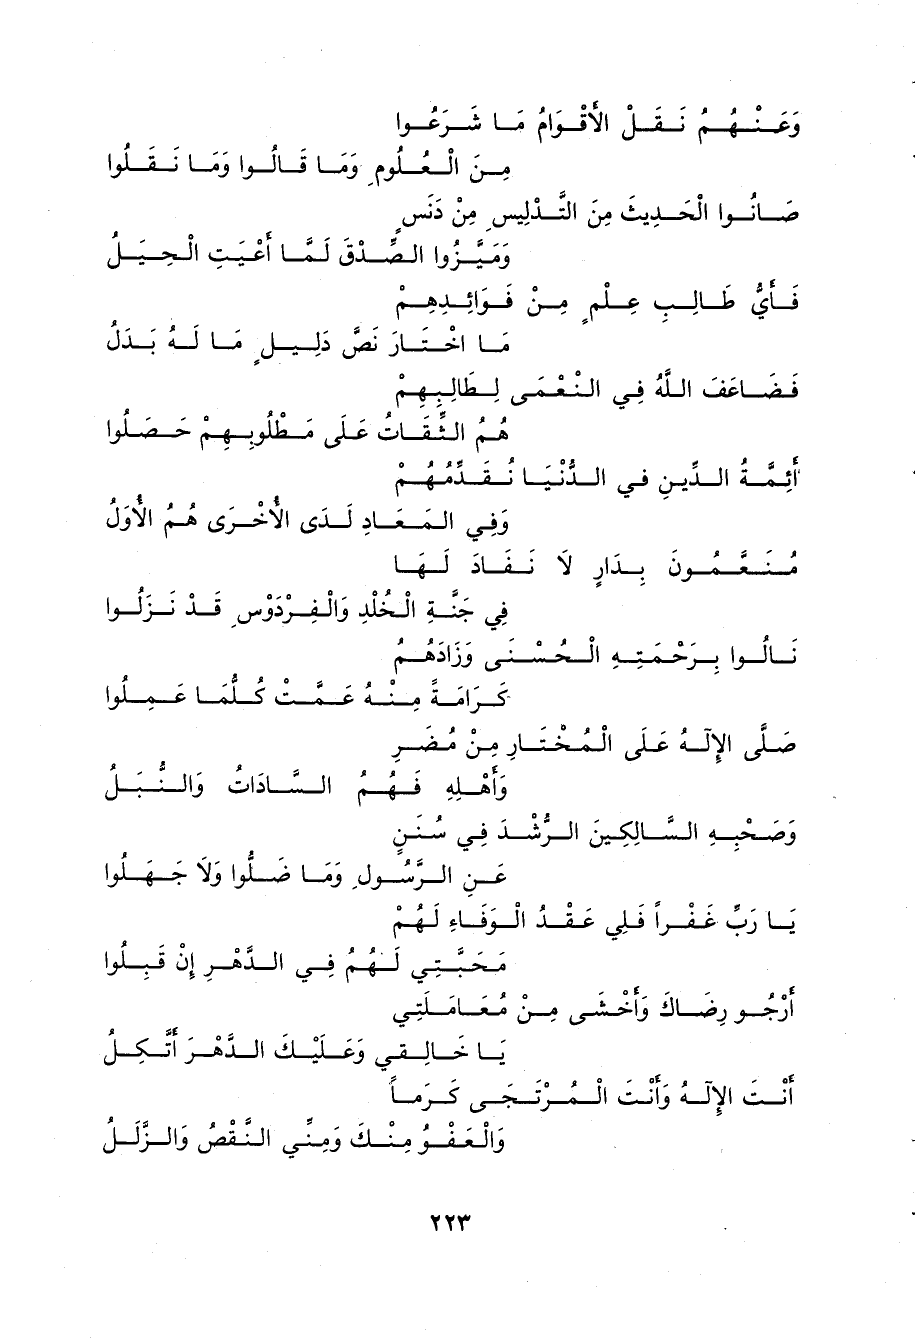 وَعَنْهُمُ نَقَلَ الأَقْوَامُ مَا شَرَعُوا
مِنَ الْعُلُومِ وَمَا قَالُوا وَمَا نَقَلُوا
صَانُوا الْحَدِيثَ مِنَ التَّدْلِيسِ مِنْ دَنَسٍ
وَمَيَّزُوا الصِّدْقَ لَمَّا أَعْيَتِ الْحِيَلُ
فَأَيُّ طَالِبِ عِلْمٍ مِنْ فَوَائِدِهِمْ
مَا اخْتَارَ نَصَّ دَلِيلٍ مَا لَهُ بَدَلُ
فَضَاعَفَ اللَّهُ فِي النُّعْمَى لِطَالِبِهِمْ
هُمُ الثِّقَاتُ عَلَى مَطْلُوبِهِمْ حَصَلُوا
أَئِمَّةُ الدِّينِ فِي الدُّنْيَا نُقَدِّمُهُمْ
وَفِي المَعَادِ لَدَى الأُخْرَى هُمُ الأُوَلُ
مُنَعَّمُونَ بِدَارٍ لاَ نَفَادَ لَهَا
فِي جَنَّةِ الْخُلْدِ وَالْفِرْدَوْسِ قَدْ نَزَلُوا
نَالُوا بِرَحْمَتِهِ الْحُسْنَى وَزَادَهُمُ
كَرَامَةً مِنْهُ عَمَّتْ كُلَّمَا عَمِلُوا
صَلَّى الإِلَهُ عَلَى الْمُخْتَارِ مِنْ مُضَرٍ
وَأَهْلِهِ فَهُمُ السَّادَاتُ وَالنُّبَلُ
وَصَحْبِهِ السَّالِكِينَ الرُّشْدَ فِي سُنَنٍ
عَنِ الرَّسُولِ وَمَا ضَلُّوا وَلاَ جَهَلُوا
يَا رَبِّ غَفْراً فَلِي عَقْدُ الْوَفَاءِ لَهُمْ
مَحَبَّتِي لَهُمُ فِي الدَّهْرِ إِنْ قَبِلُوا
أَرْجُو رِضَاكَ وَأَخْشَى مِنْ مُعَامَلَتِي
يَا خَالِقِي وَعَلَيْكَ الدَّهْرَ أَتَّكِلُ
أَنْتَ الإِلَهُ وَأَنْتَ الْمُرْتَجَى كَرَماً
وَالْعَفْوُ مِنْكَ وَمِنِّي النَّقْصُ وَالزَّلَلُ
٢٢٣